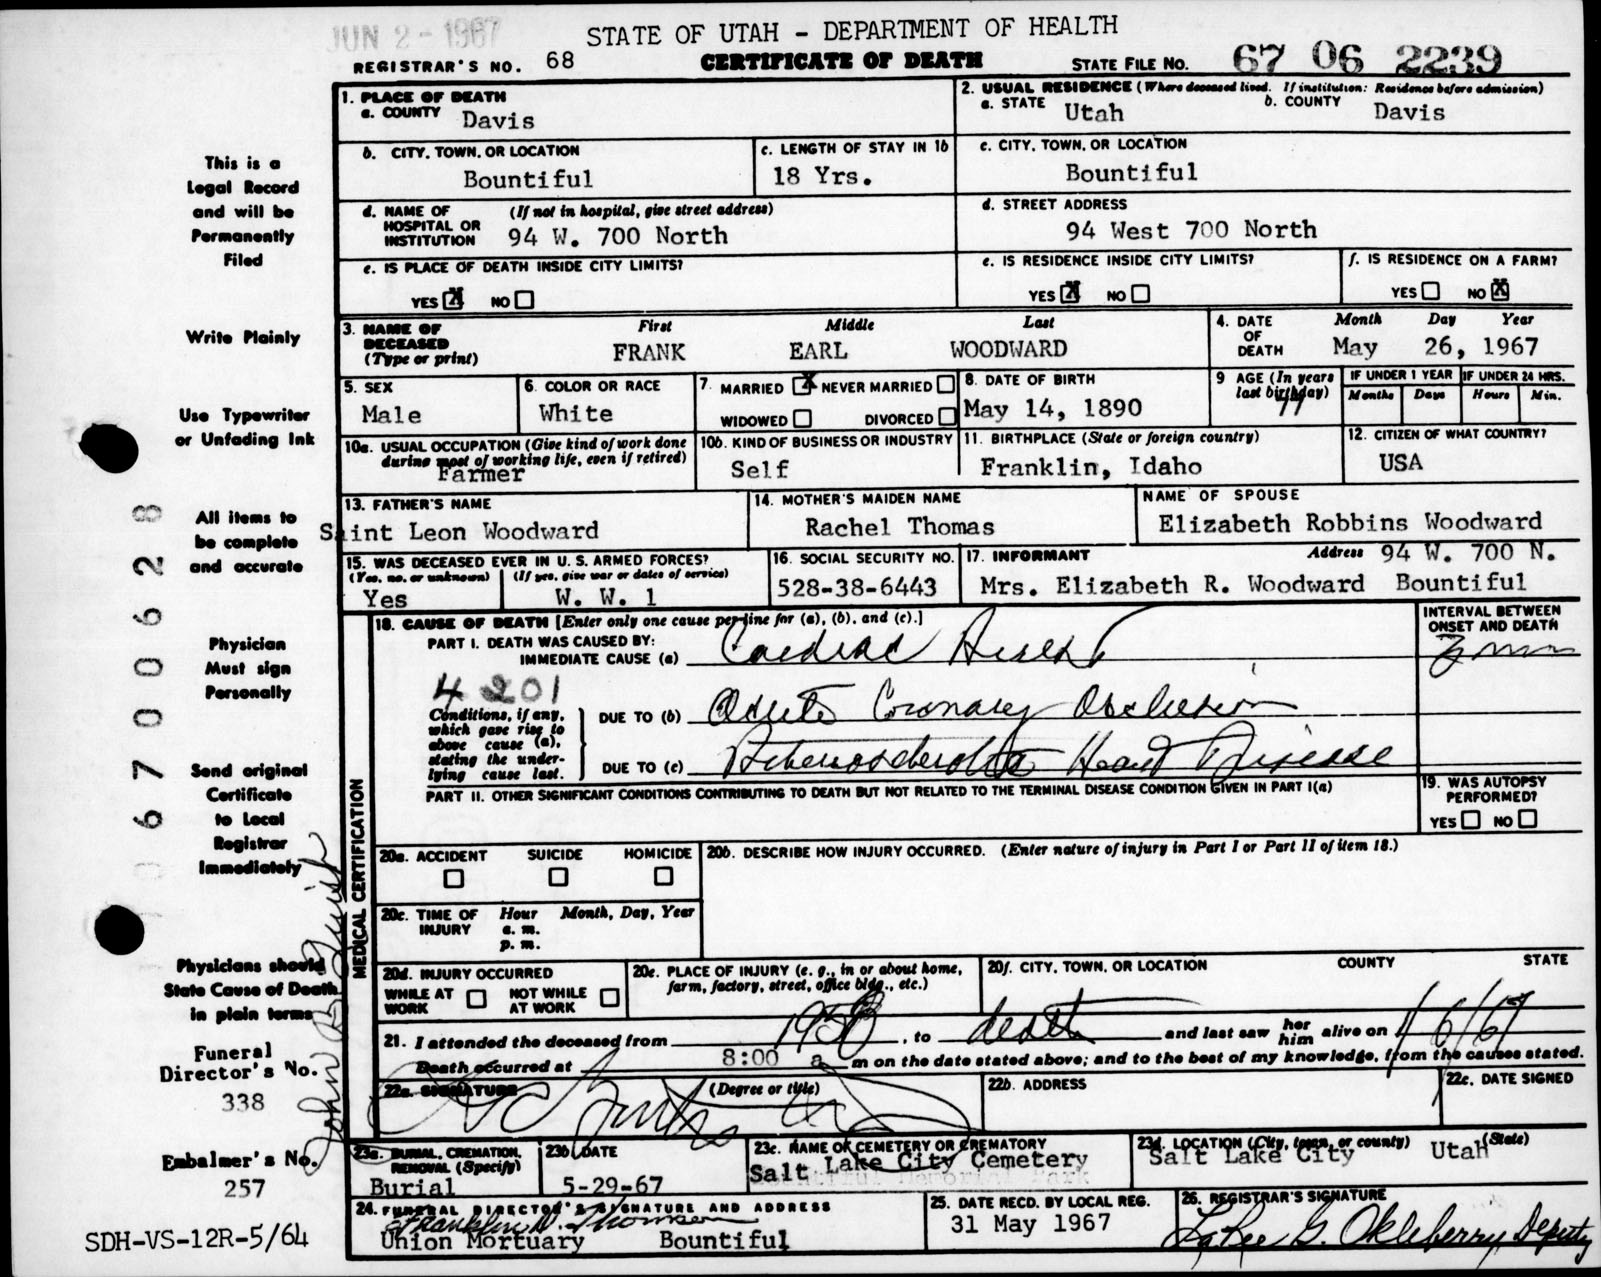 JUN 2 - 1967
STATE OF UTAH - DEPARTMENT OF HEALTH
REGISTRAR'S NO. 68 CERTIFICATE OF DEATH STATE FILE NO. 67 06 2239
1. PLACE OF DEATH
a. COUNTY Davis
2. USUAL RESIDENCE (Where deceased lived. If institution: Residence before admission)
a. STATE Utah b. COUNTY Davis
b. CITY, TOWN, OR LOCATION
Bountiful
c. LENGTH OF STAY IN 1b
18 Yrs.
c. CITY, TOWN, OR LOCATION
Bountiful
d. NAME OF HOSPITAL OR INSTITUTION (If not in hospital, give street address)
94 W. 700 North
d. STREET ADDRESS
94 West 700 North
e. IS PLACE OF DEATH INSIDE CITY LIMITS?
YES X NO
e. IS RESIDENCE INSIDE CITY LIMITS?
YES X NO
f. IS RESIDENCE ON A FARM?
YES NO X
3. NAME OF DECEASED (Type or print)
First Middle Last
FRANK EARL WOODWARD
4. DATE OF DEATH
Month Day Year
May 26, 1967
5. SEX
Male
6. COLOR OR RACE
White
7. MARRIED X NEVER MARRIED
WIDOWED DIVORCED
8. DATE OF BIRTH
May 14, 1890
9 AGE (In years last birthday)
77
IF UNDER 1 YEAR
Months Days
IF UNDER 24 HRS.
Hours Min.
10a. USUAL OCCUPATION (Give kind of work done during most of working life, even if retired)
Farmer
10b. KIND OF BUSINESS OR INDUSTRY
Self
11. BIRTHPLACE (State or foreign country)
Franklin, Idaho
12. CITIZEN OF WHAT COUNTRY?
USA
13. FATHER'S NAME
Saint Leon Woodward
14. MOTHER'S MAIDEN NAME
Rachel Thomas
NAME OF SPOUSE
Elizabeth Robbins Woodward
15. WAS DECEASED EVER IN U. S. ARMED FORCES?
(Yes, no, or unknown) (If yes, give war or dates of service)
Yes W. W. 1
16. SOCIAL SECURITY NO.
528-38-6443
17. INFORMANT Address 94 W. 700 N.
Mrs. Elizabeth R. Woodward Bountiful
MEDICAL CERTIFICATION
18. CAUSE OF DEATH [Enter only one cause per line for (a), (b), and (c).]
PART I. DEATH WAS CAUSED BY:
IMMEDIATE CAUSE (a) Cardiac Arrest
INTERVAL BETWEEN ONSET AND DEATH
4 201
Conditions, if any, which gave rise to above cause (a), stating the underlying cause last.
DUE TO (b) Acute Coronary Occlusion
DUE TO (c) Arteriosclerotic Heart Disease
PART II. OTHER SIGNIFICANT CONDITIONS CONTRIBUTING TO DEATH BUT NOT RELATED TO THE TERMINAL DISEASE CONDITION GIVEN IN PART I(a)
19. WAS AUTOPSY PERFORMED?
YES NO
20a. ACCIDENT SUICIDE HOMICIDE
20b. DESCRIBE HOW INJURY OCCURRED. (Enter nature of injury in Part I or Part II of item 18.)
20c. TIME OF INJURY Hour Month, Day, Year
a. m.
p. m.
20d. INJURY OCCURRED
WHILE AT WORK NOT WHILE AT WORK
20e. PLACE OF INJURY (e. g., in or about home, farm, factory, street, office bldg., etc.)
20f. CITY, TOWN, OR LOCATION COUNTY STATE
21. I attended the deceased from 1958, to death and last saw her him alive on 1/6/67
Death occurred at 8:00 a m on the date stated above; and to the best of my knowledge, from the causes stated.
22a. SIGNATURE (Degree or title)
22b. ADDRESS
22c. DATE SIGNED
23a. BURIAL, CREMATION, REMOVAL (Specify)
Burial
23b. DATE
5-29-67
23c. NAME OF CEMETERY OR CREMATORY
Salt Lake City Cemetery
Bountiful Memorial Park
23d. LOCATION (City, town, or county) (State)
Salt Lake City Utah
24. FUNERAL DIRECTOR'S SIGNATURE AND ADDRESS
Franklin D. Thomson
Union Mortuary Bountiful
25. DATE RECD. BY LOCAL REG.
31 May 1967
26. REGISTRAR'S SIGNATURE
LaRee G. Okleberry, Deputy
This is a
Legal Record
and will be
Permanently
Filed
Write Plainly
Use Typewriter
or Unfading Ink
All items to
be complete
and accurate
Physician
Must sign
Personally
Send original
Certificate
to Local
Registrar
Immediately
Physicians should
State Cause of Death
in plain terms
Funeral
Director's No.
338
Embalmer's No.
257
SDH-VS-12R-5/64
06700628